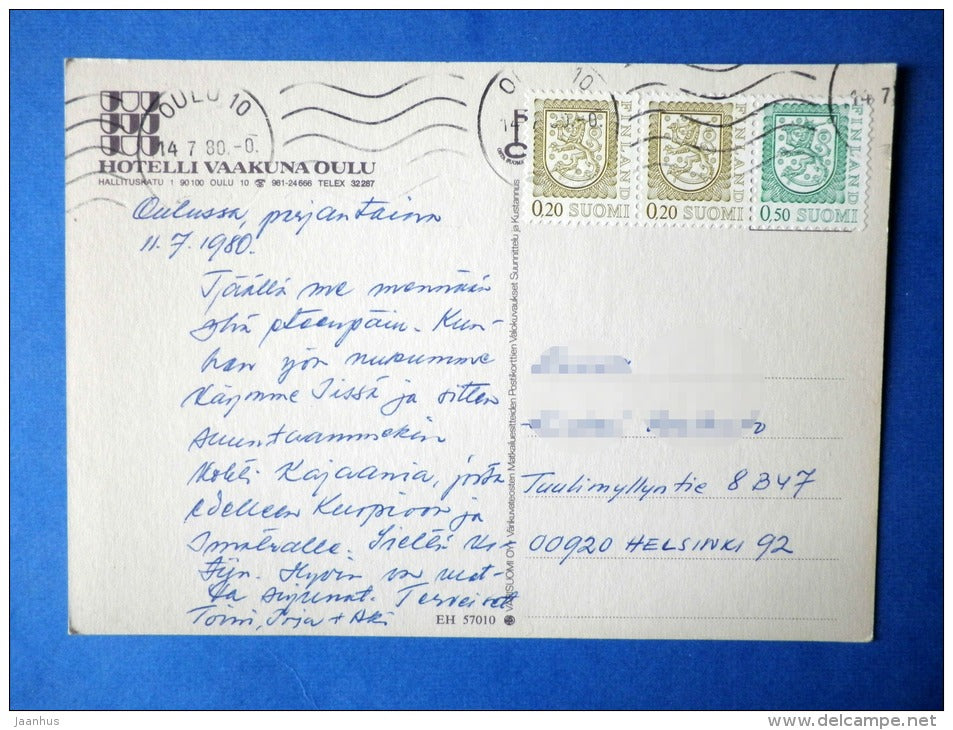 OULU 10
14 7 80.-0.
HOTELLI VAAKUNA OULU
HALLITUSKATU 1 90100 OULU 10 ☎ 981-24666 TELEX 32287
FINLAND
0.20 SUOMI
FINLAND
0.20 SUOMI
FINLAND
0.50 SUOMI
Oulussa, perjantaina
11.7.1980.
Täällä me mennään
yhä eteenpäin. Kun-
han yön nukumme
käymme Iissä ja sitten
suuntaammekin
kohti Kajaania, josta
edelleen Kuopioon ja
Imatralle. Sieltä ko-
tiin. Hyvin on mat-
ka sujunut. Terveiset
Toini, Irja + Aki
Tuulimyllyntie 8 B 47
00920 HELSINKI 92
VÄRISUOMI OY. Värikuvateosten Matkailuesitteiden Postikorttien Valokuvaukset Suunnittelu ja Kustannus
EH 57010
jaanhus
www.delcampe.net